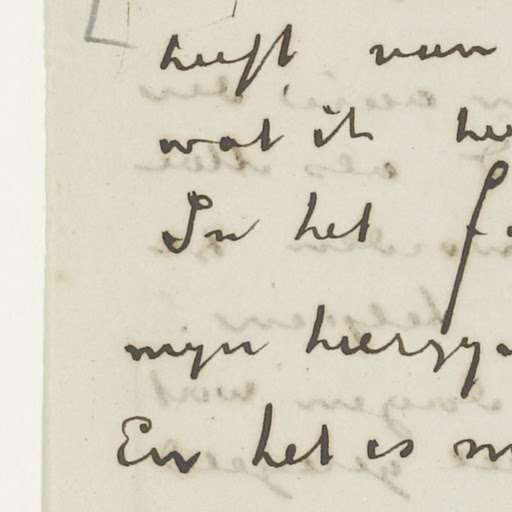 heeft van
wat ik he
In het f
myn hierzy
En het is m